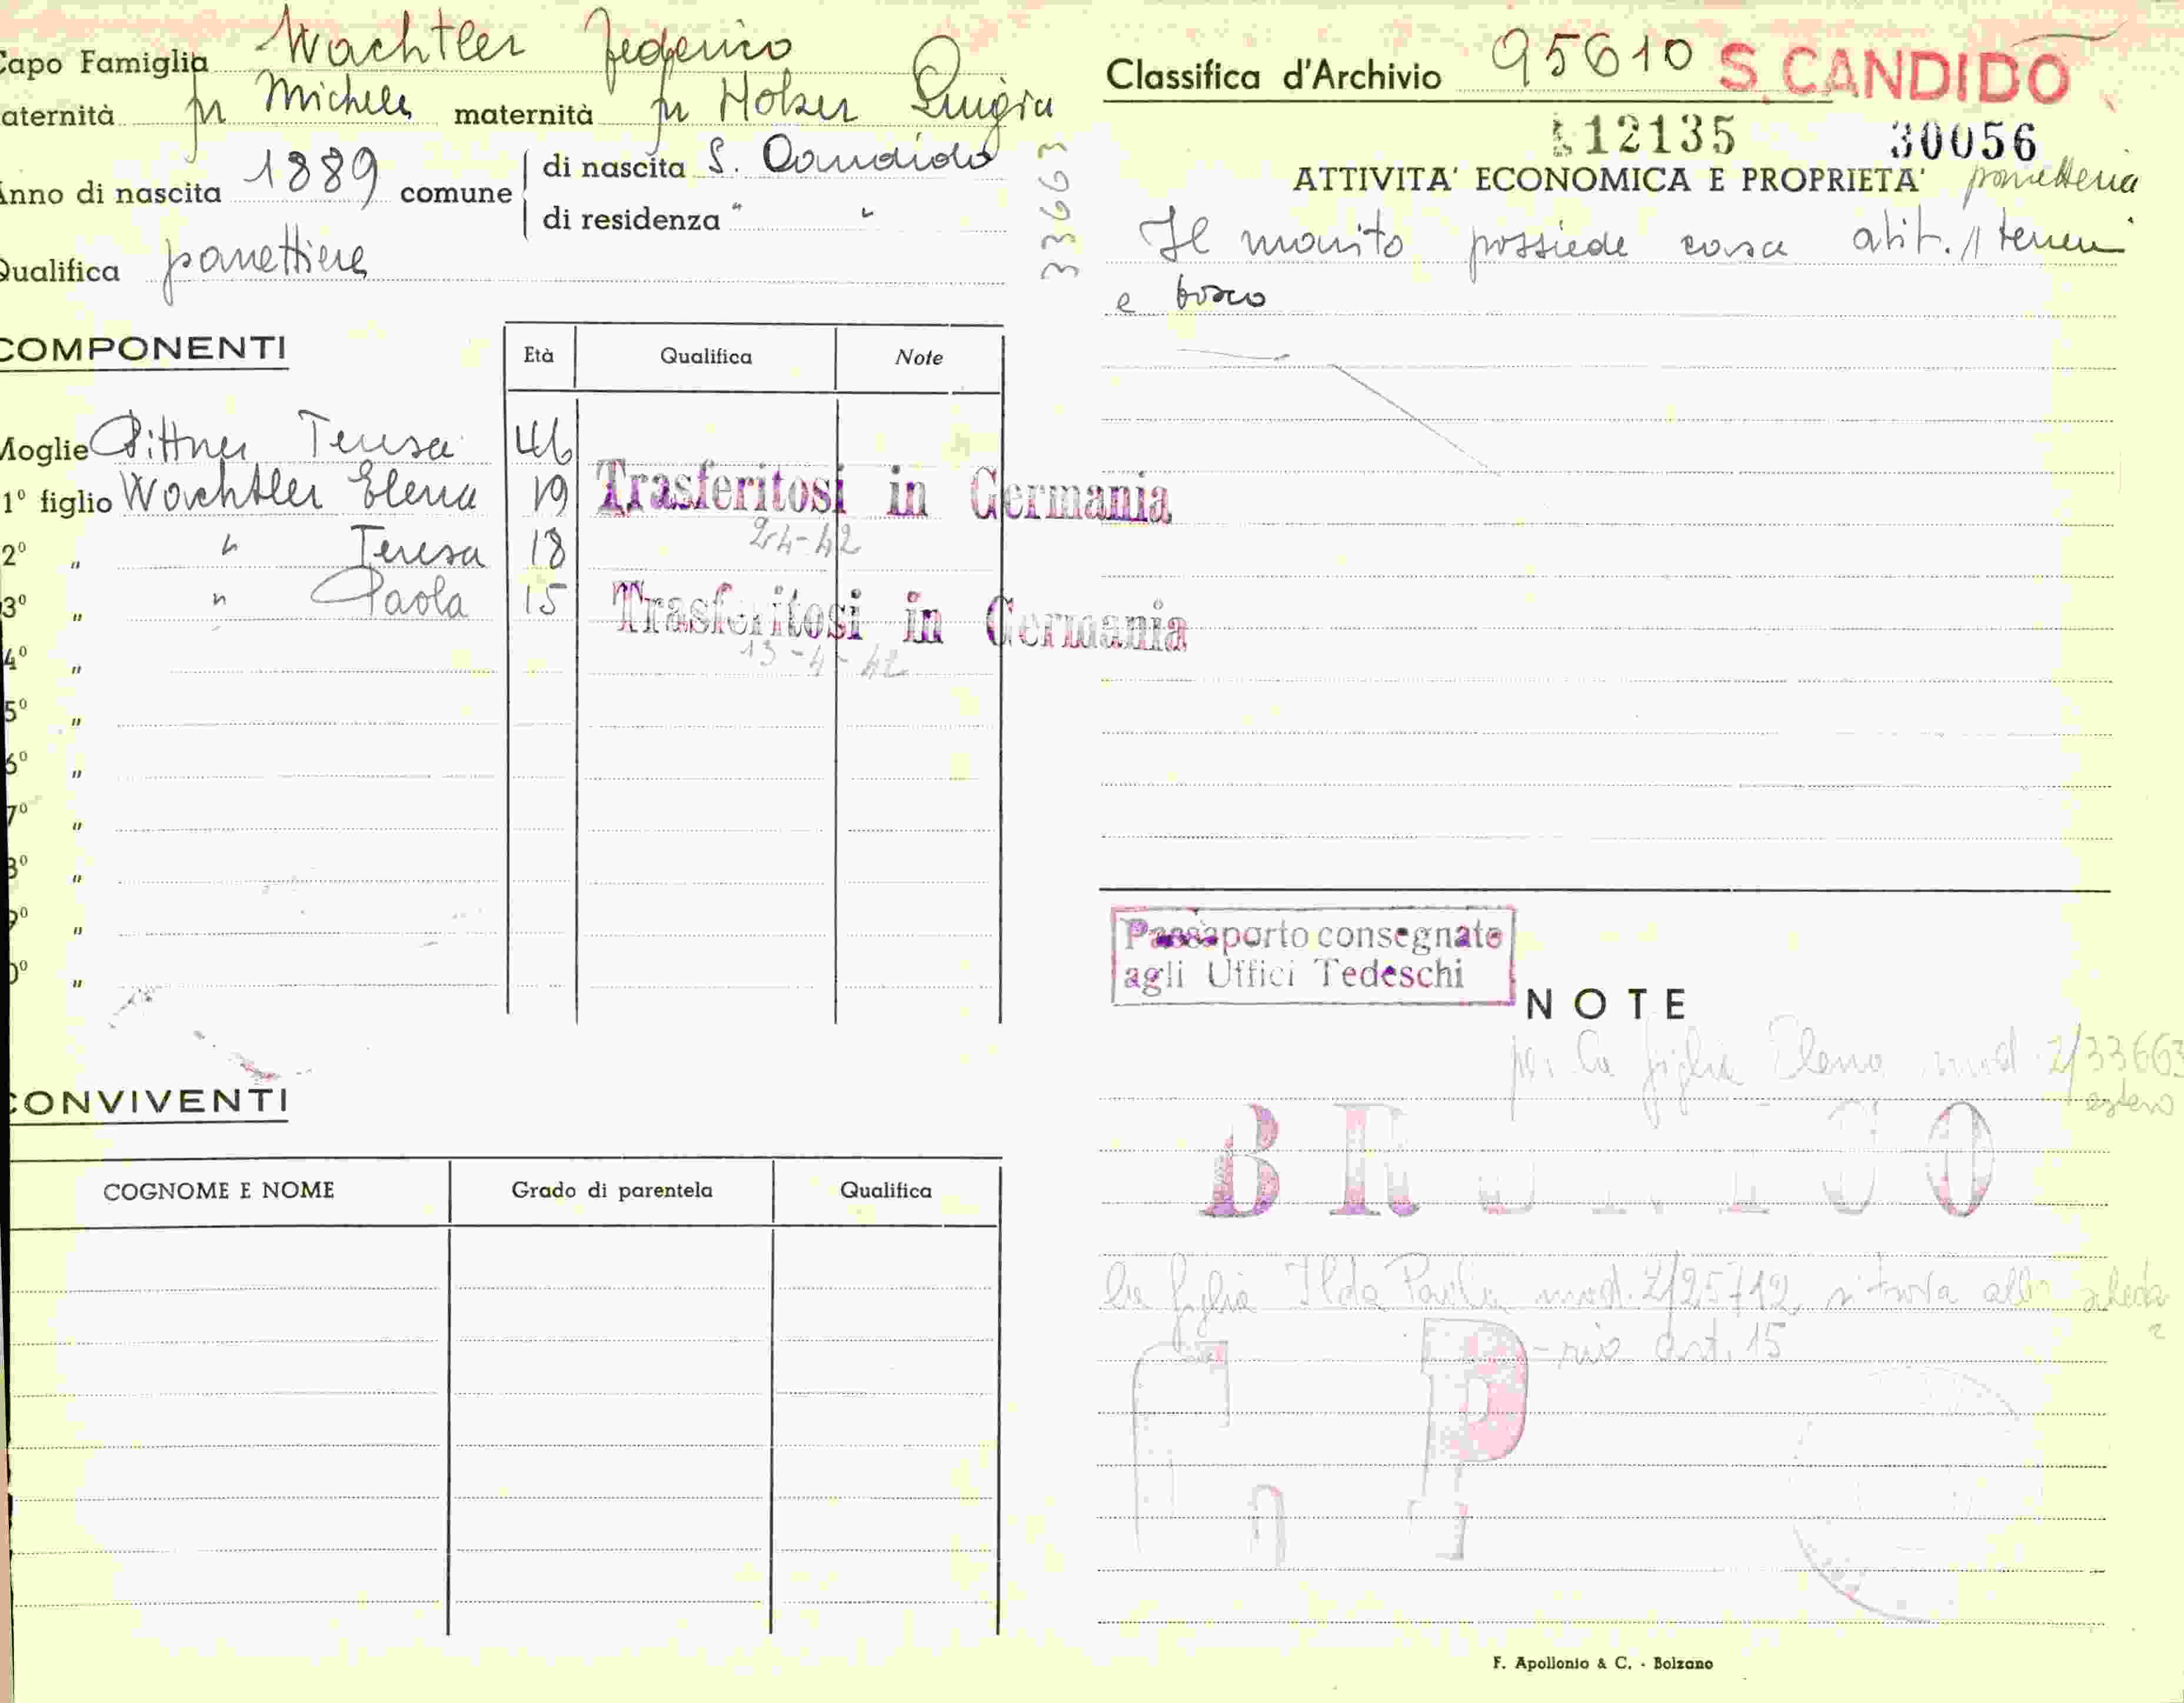 Capo Famiglia Wachtler Federico
aternità fu Michele maternità fu Holzer Luigia
Anno di nascita 1889 comune di nascita S. Candido
di residenza " "
Qualifica panettiere
33663
COMPONENTI
Età Qualifica Note
Moglie Pittner Teresa 46
1º figlio Wachtler Elena 19 Trasferitosi in Germania
2º " " Teresa 18 24-42
3º " " Paola 15 Trasferitosi in Germania
4º " 13-4-42
5º "
6º "
7º "
8º "
9º "
0º "
CONVIVENTI
COGNOME E NOME Grado di parentela Qualifica
Classifica d'Archivio 95610 S. CANDIDO
12135 30056
ATTIVITA' ECONOMICA E PROPRIETA' panetteria
Il marito possiede casa abit. terreni
e bosco
Passaporto consegnato
agli Uffici Tedeschi
NOTE
per la figlia Elena mod. 2/33663
estero
BRUNICO
la figlia Ilda Paola mod. 2/25712 si trova alla scheda
art. 15
P
F. Apollonio & C. - Bolzano